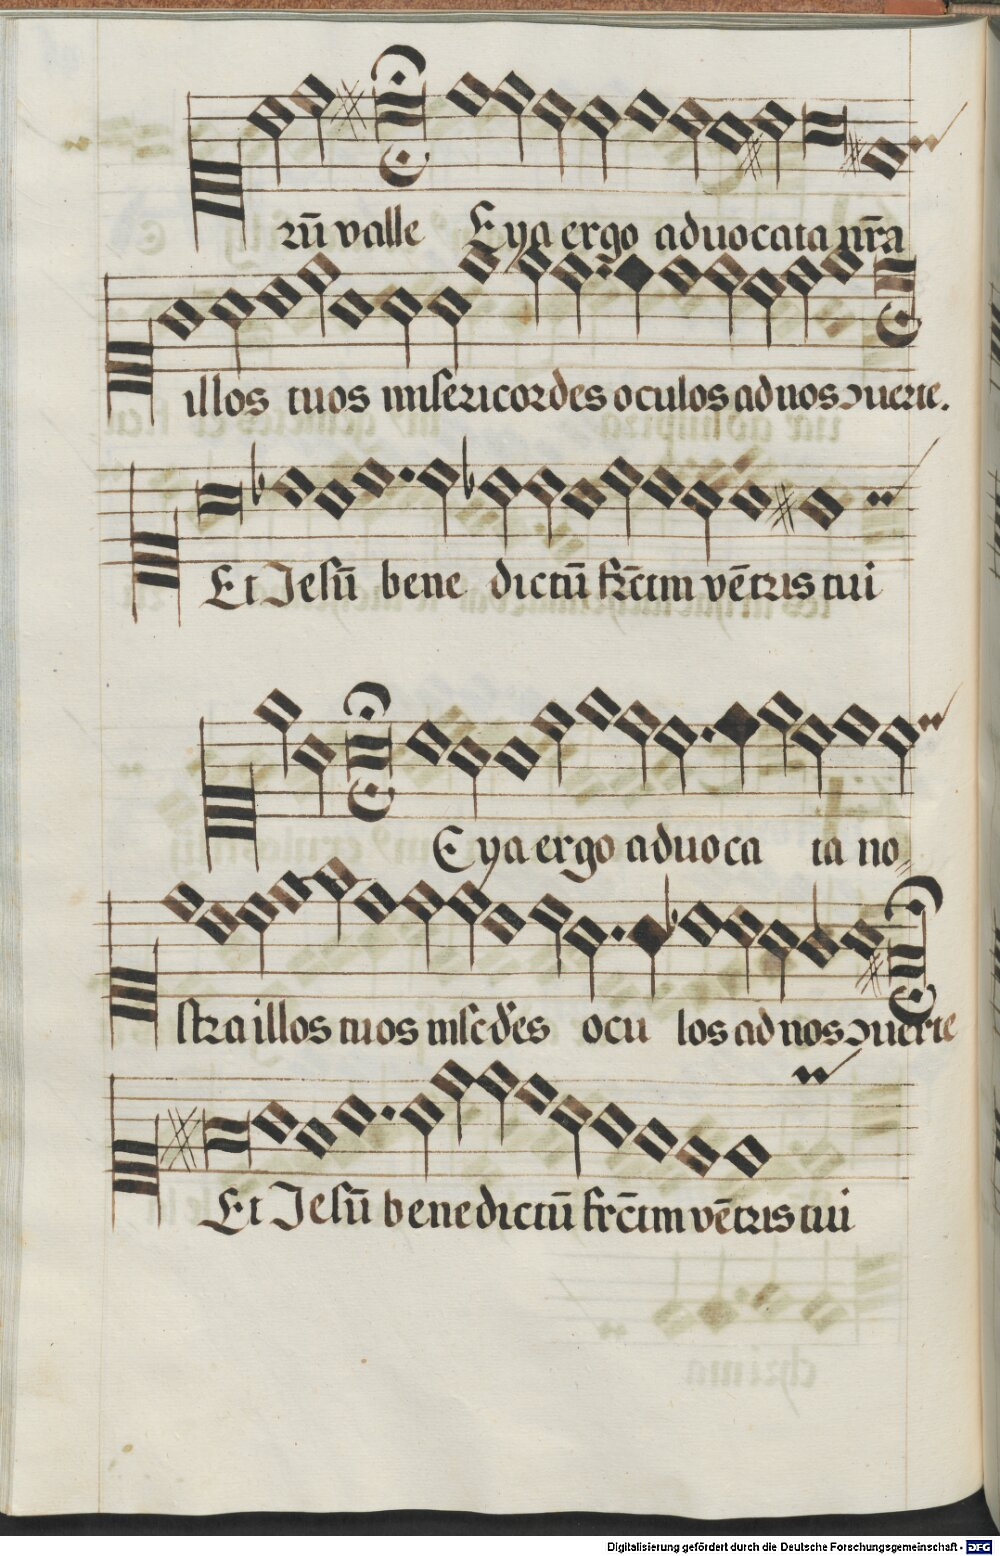 rũ valle Eya ergo aduocata nr̃a
illos tuos misericordes oculos ad nos ɔuerte.
Et Jesũ bene dictũ fr̃ctm vẽtris tui
Eya ergo aduoca ta no
stra illos tuos ocu los ad nos ɔuerte
Et Jesũ benedictũ fr̃ctm vẽtris tui
Digitalisierung gefördert durch die Deutsche Forschungsgemeinschaft - DFG